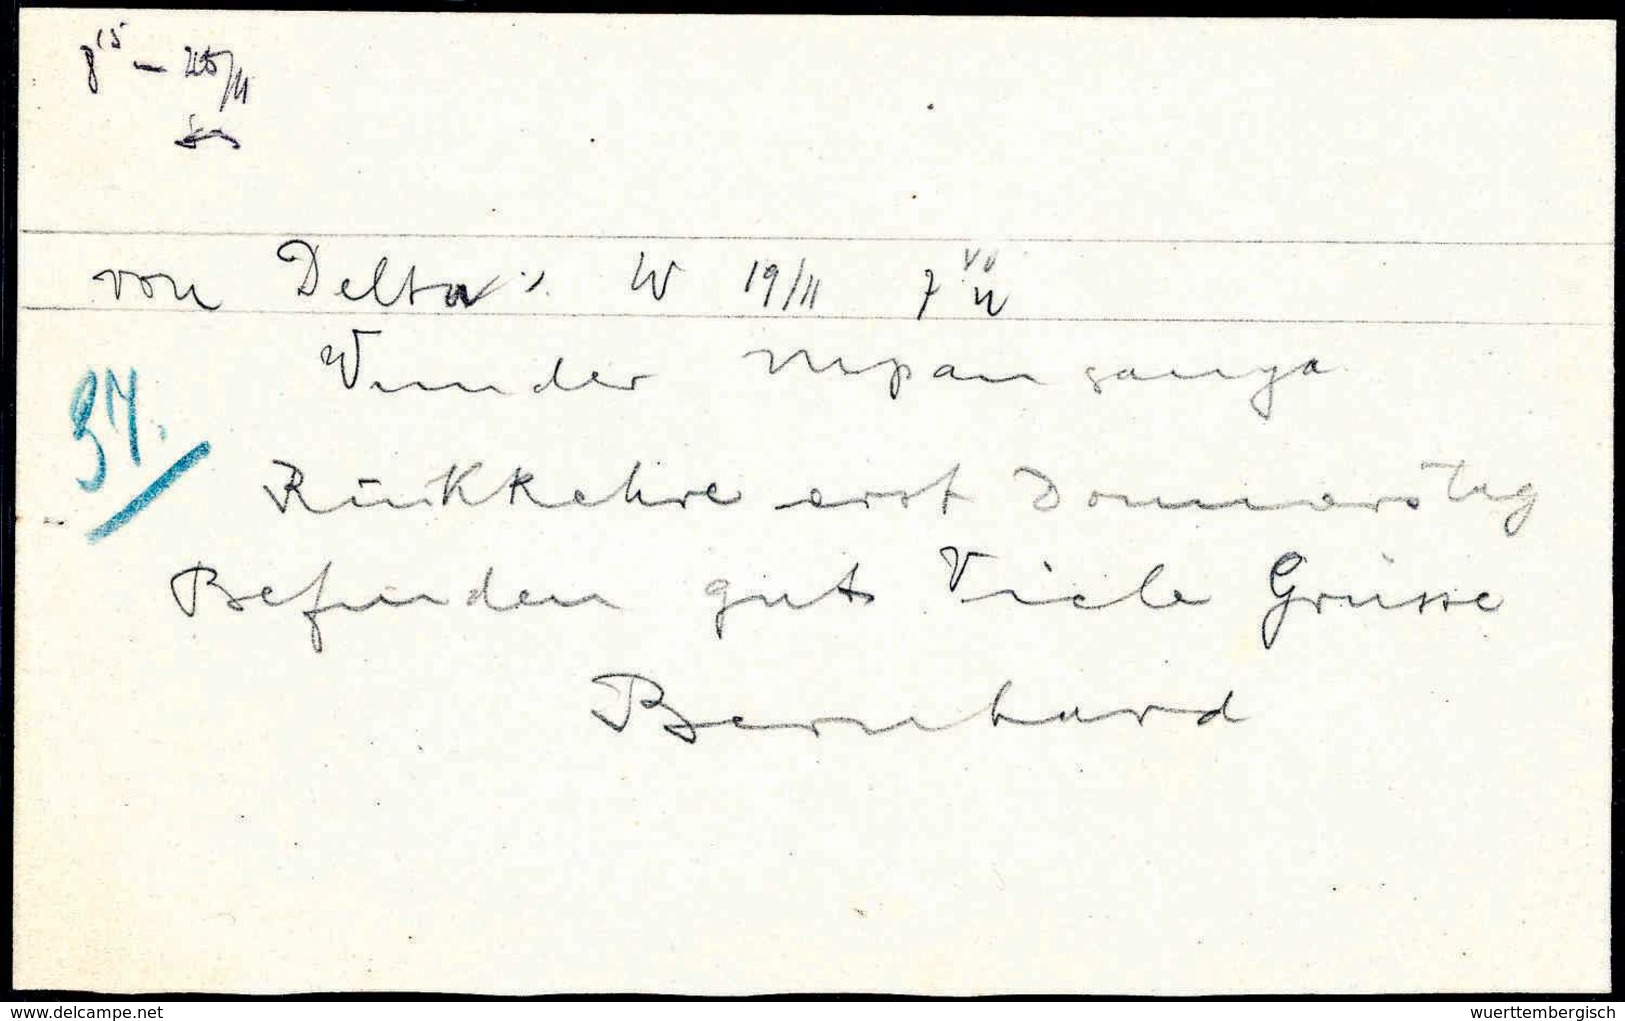 8 15 –
von Delta W 19/11 7
Wunder Mpanganya
97.
Rückkehre erst Donnerstag
Befinden gut Viele Grüsse
Bernhard
www.delcampe.net
wuerttembergisch